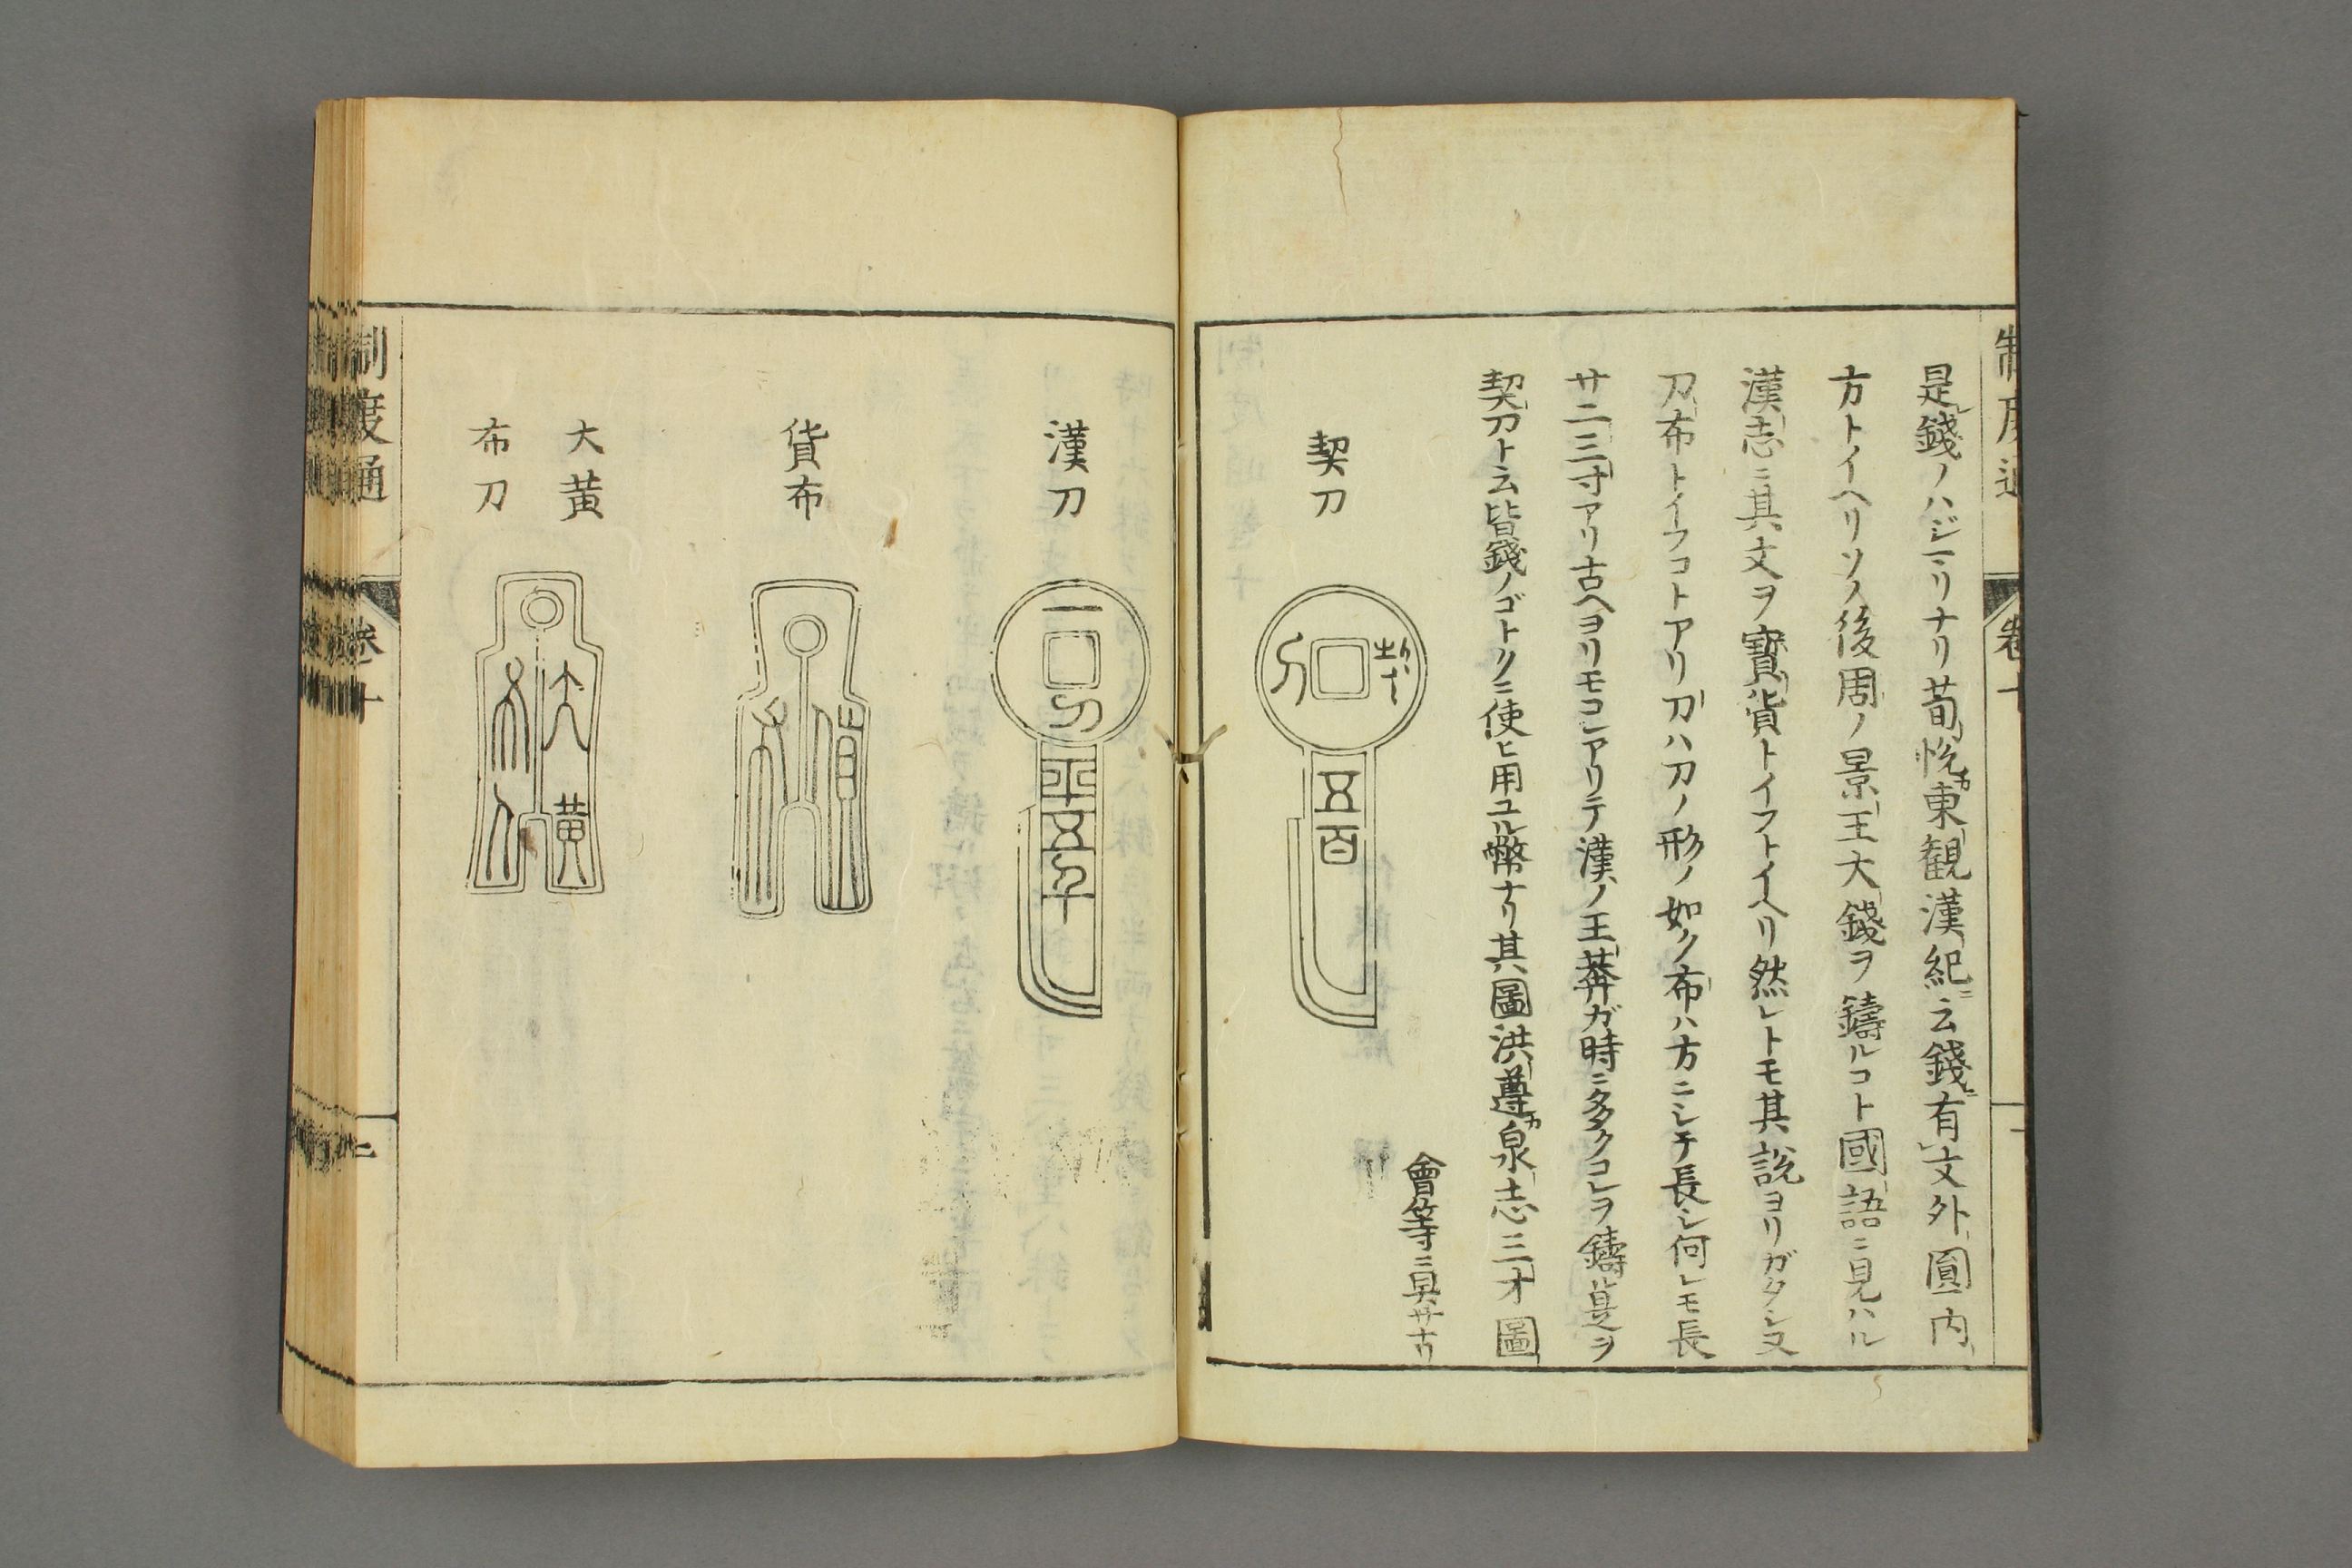 是錢ノハジマリナリ荀悅カ東観漢紀ニ云錢有文外圓内
方トイヘリソノ後周ノ景王大錢ヲ鑄ルコト國語ニ見ハル
漢志ニ其文ヲ寳貨トイフトイヘリ然レトモ其説ヨリガタシ又
刀布トイフコトアリ刀ハ刀ノ形ノ如ク布ハ方ニシテ長シ何レモ長
サ二三寸アリ古ヘヨリモコレアリテ漢ノ王莽ガ時ニ多クコレヲ鑄ル是ヲ
契刀ト云皆錢ノゴトクニ使ヒ用ユル幣ナリ其圖洪遵カ泉志三才圖
會等ニ具サナリ
契刀
契刀
五百
漢刀
一刀
平五千
貨布
貨布
大黄
布刀
大黄
布刀
制度通
卷十
二